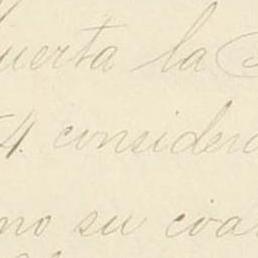 uerta la
4. considera
no su coar